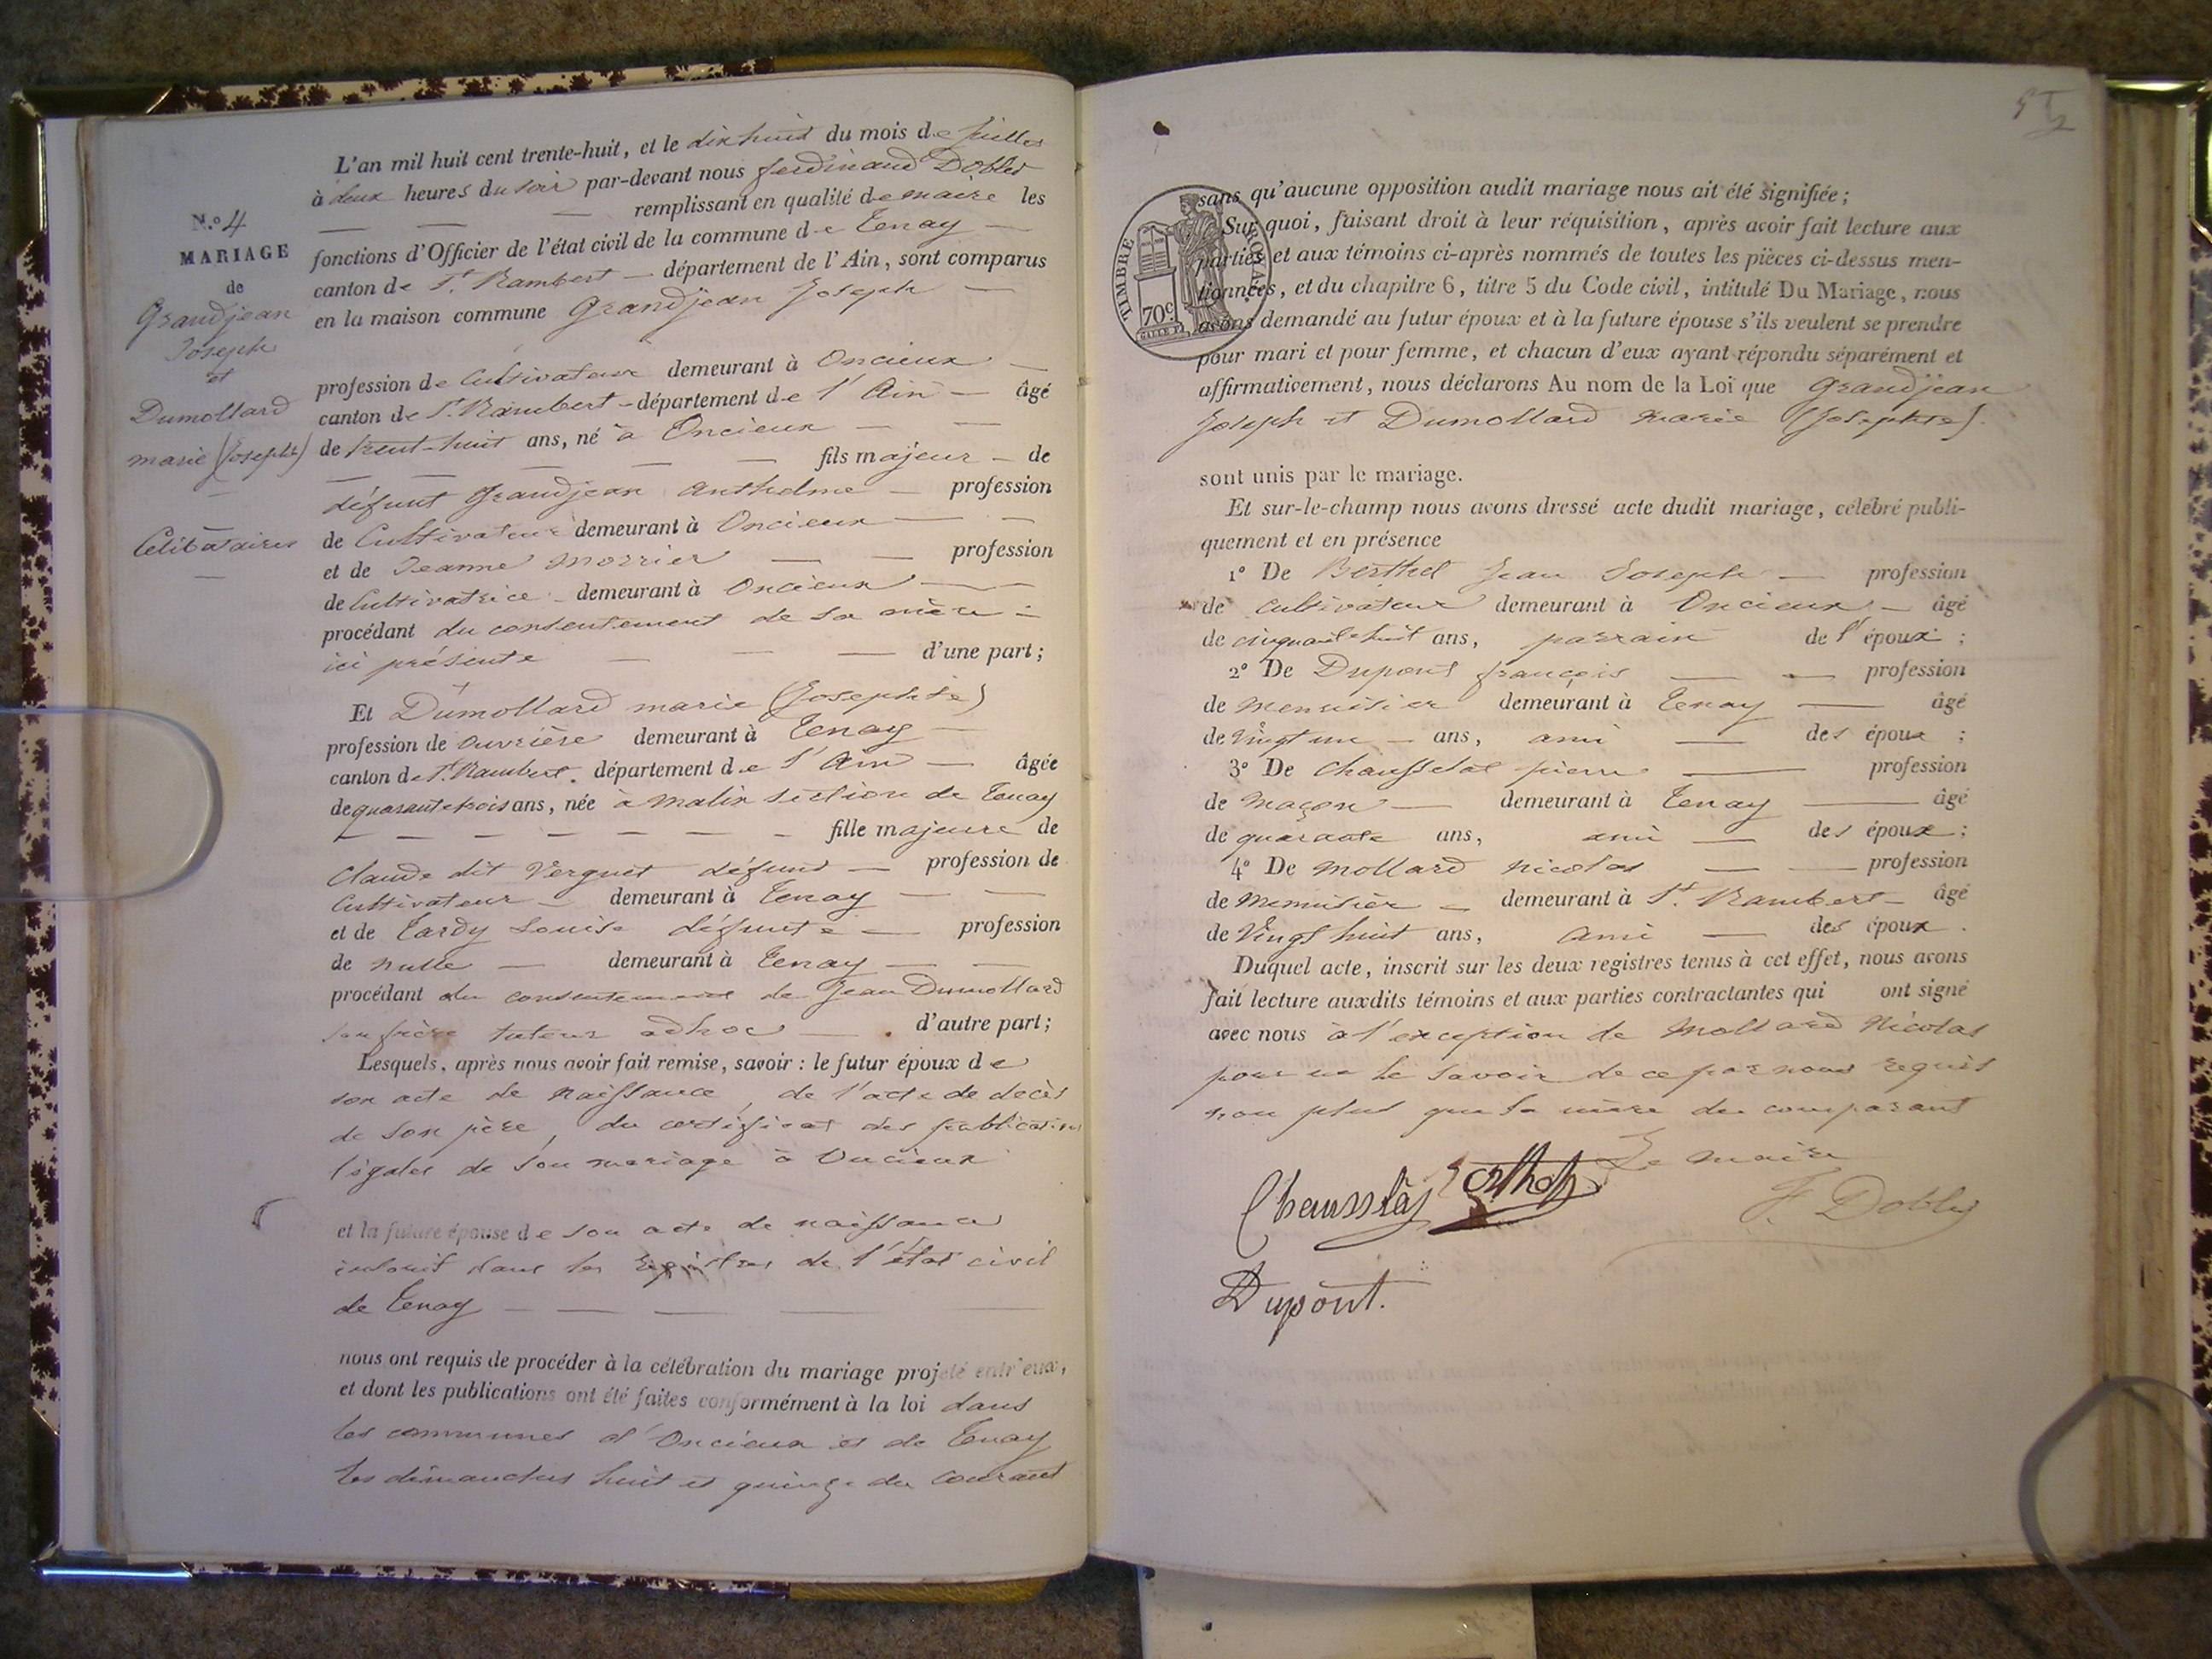 N.o 4
MARIAGE
de
Grandjean
Joseph
et
Dumollard
marie (Josephte)
Célibataires
L'an mil huit cent trente-huit, et le dix huit du mois de juillet
à deux heures du soir par-devant nous ferdinand Doblet
remplissant en qualité de maire les
fonctions d'Officier de l'état civil de la commune de Tenay
canton de St. Rambert département de l'Ain, sont comparus
en la maison commune Grandjean Joseph
profession de Cultivateur demeurant à Oncieux
canton de St. Rambert - département de l'Ain âgé
de trent-huit ans, né à Oncieux
fils majeur de
défunt Grandjean Anthelme profession
de Cultivateur demeurant à Oncieux
et de Jeanne morrier profession
de Cultivatrice demeurant à Oncieux
procédant du consentement de sa mère
ici présente d'une part;
Et Dumollard marie (Josephte)
profession de ouvrière demeurant à Tenay
canton de St. Rambert. département de l'Ain âgée
de quarante trois ans, née à malix section de Tenay
fille majeure de
Claude dit Verguet défunt profession de
Cultivateur demeurant à Tenay
et de Tardy Louise défunte profession
de nulle demeurant à Tenay
procédant du consentement de Jean Dumollard
son frère tuteur adhoc d'autre part;
Lesquels, après nous avoir fait remise, savoir: le futur époux de
son acte de naissance, de l'acte de décès
de son père, du certificat des publications
légales de son mariage à Oncieux
et la future épouse de son acte de naissance
inscrit dans les registres de l'état civil
de Tenay
nous ont requis de procéder à la célébration du mariage projeté entr'eux,
et dont les publications ont été faites conformément à la loi dans
les communes d'Oncieux et de Tenay
les dimanches huit et quinze du courant
TIMBRE ROYAL
70c
sans qu'aucune opposition audit mariage nous ait été signifiée;
Sur quoi, faisant droit à leur réquisition, après avoir fait lecture aux
parties et aux témoins ci-après nommés de toutes les pièces ci-dessus men-
tionnées, et du chapitre 6, titre 5 du Code civil, intitulé Du Mariage, nous
avons demandé au futur époux et à la future épouse s'ils veulent se prendre
pour mari et pour femme, et chacun d'eux ayant répondu séparément et
affirmativement, nous déclarons Au nom de la Loi que Grandjean
Joseph et Dumollard marie (Josephte).
sont unis par le mariage.
Et sur-le-champ nous avons dressé acte dudit mariage, célébré publi-
quement et en présence
1o De Berthet Jean Joseph profession
de cultivateur demeurant à Oncieux âgé
de cinquante huit ans, parrain de l'époux;
2o De Dupont françois profession
de menuisier demeurant à Tenay âgé
de vingt un ans, ami des époux;
3o De Chausselat pierre profession
de maçon demeurant à Tenay âgé
de quarante ans, ami des époux;
4o De mollard nicolas profession
de menuisier demeurant à St. Rambert âgé
de Vingt huit ans, ami des époux.
Duquel acte, inscrit sur les deux registres tenus à cet effet, nous avons
fait lecture auxdits témoins et aux parties contractantes qui ont signé
avec nous à l'exception de Mollard Nicolas
pour ne le savoir de ce par nous requis
non plus que la mère du comparant
Le maire
Chausslas
F. Doblet
Dupont.